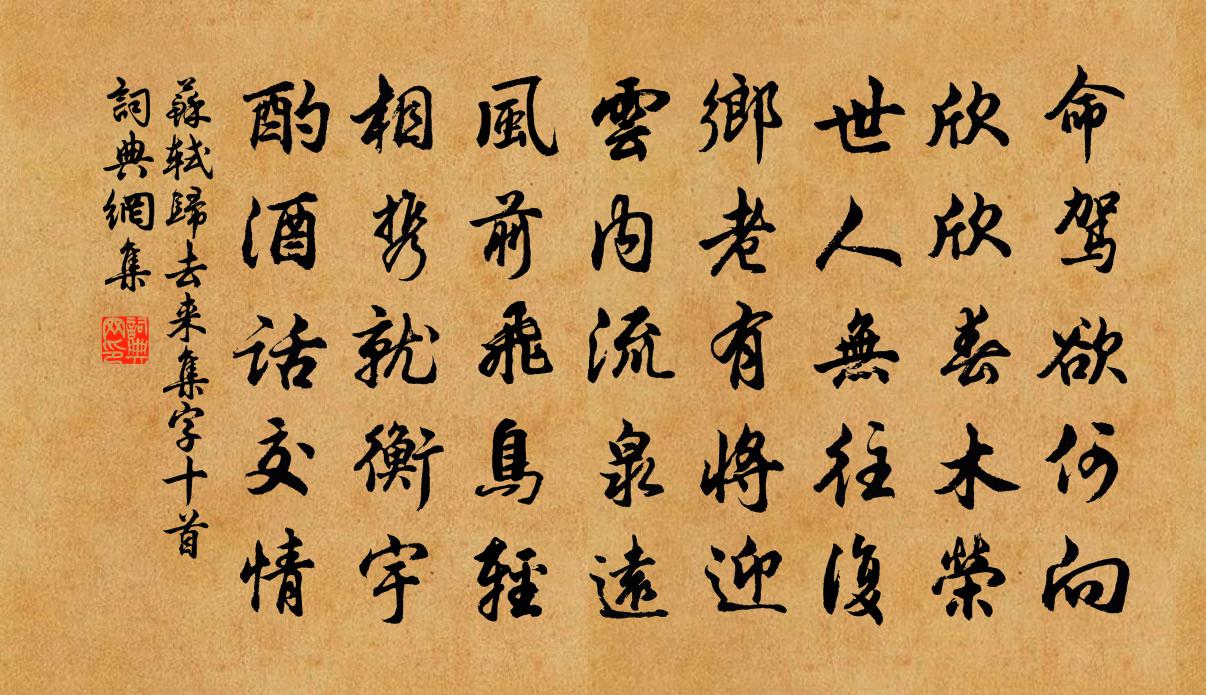 命駕欲何向
欣欣春木榮
世人無往復
鄉老有將迎
雲内流泉遠
風前飛鳥輕
相携就衡宇
酌酒話交情
蘇軾歸去来集字十首
詞典網集
詞典
网印